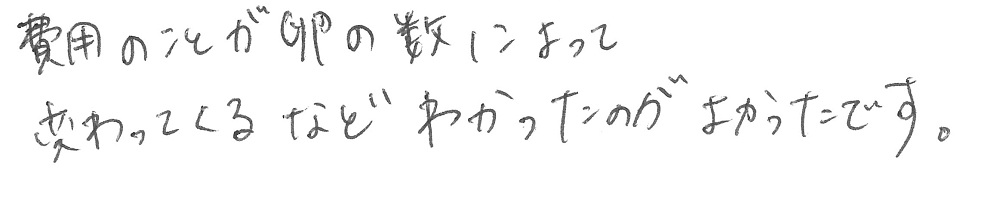 費用のことが卵の数によって
変わってくるなどわかったのがよかったです。